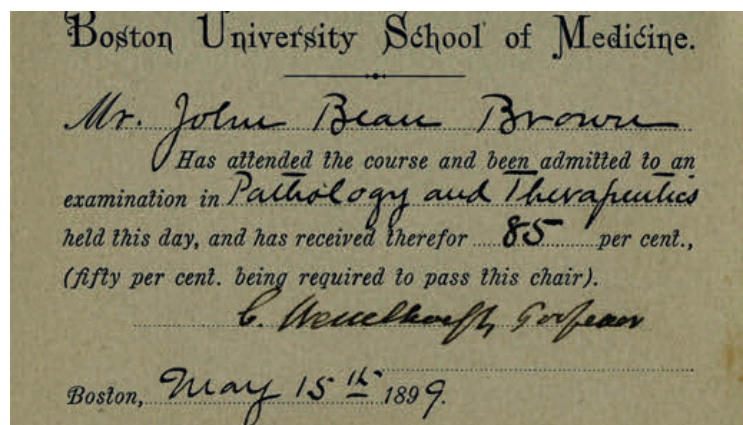 Boston University School of Medicine.
Mr. John Bean Brown
Has attended the course and been admitted to an
examination in Pathology and Therapeutics
held this day, and has received therefor 85 per cent.,
(fifty per cent. being required to pass this chair).
C. Wesselhoeft, Professor
Boston, May 15th 1899.